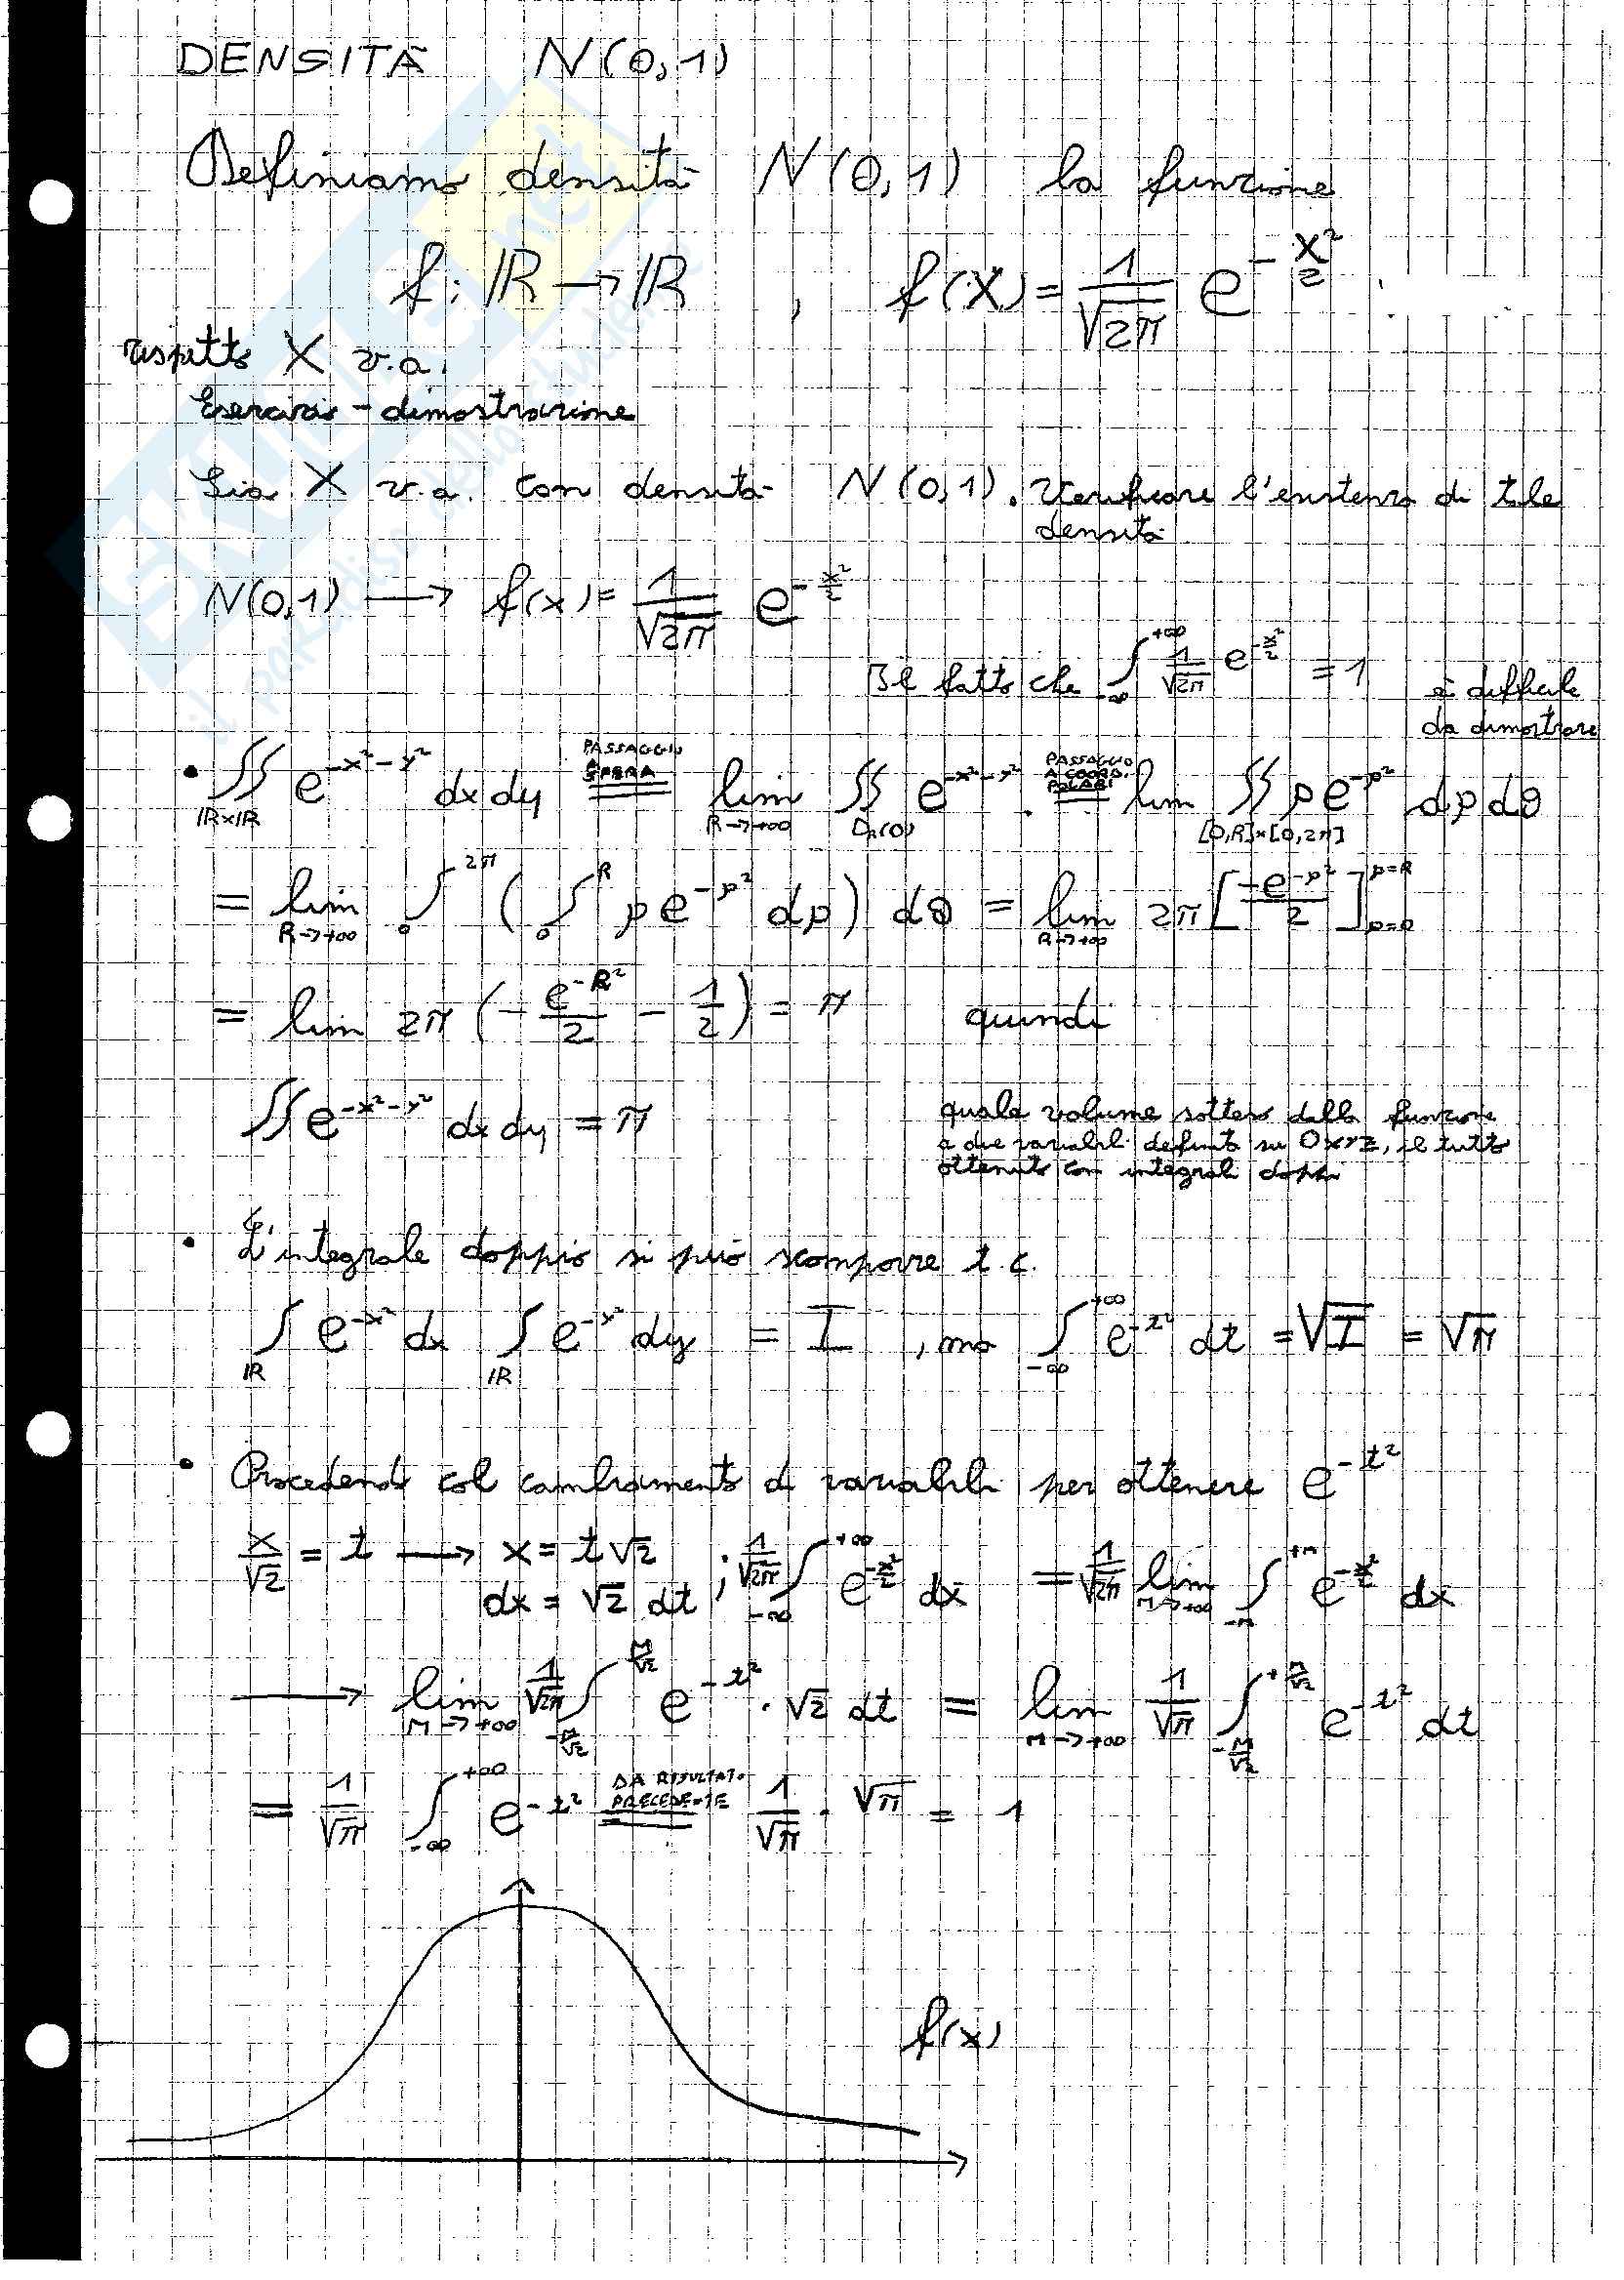 DENSITÀ N(0,1)
Definiamo densità N(0,1) la funzione
f: ℝ → ℝ , f(x) = 1/√(2π) e^(-x²/2)
rispetto X v.a.
Esercizio - dimostrazione
Sia X v.a. con densità N(0,1). Verificare l'esistenza di tale
densità
N(0,1) → f(x) = 1/√(2π) e^(-x²/2)
Il fatto che ∫_{-∞}^{+∞} 1/√(2π) e^(-x²/2) = 1 è difficile
da dimostrare
• ∬_{ℝ×ℝ} e^(-x²-y²) dx dy = PASSAGGIO A SFERA lim_{R→+∞} ∬_{D_R(0)} e^(-x²-y²) . = PASSAGGIO A COORD. POLARI lim ∬_{[0,R]×[0,2π]} ρe^(-ρ²) dρ dθ
= lim_{R→+∞} ∫_0^{2π} ( ∫_0^R ρe^(-ρ²) dρ ) dθ = lim_{R→+∞} 2π [ -e^(-ρ²)/2 ]_{ρ=0}^{ρ=R}
= lim 2π ( - e^(-R²)/2 - 1/2 ) = π quindi
∬ e^(-x²-y²) dx dy = π
quale volume sotteso dalla funzione
a due variabili definito su Oxyz, il tutto
ottenuto con integrali doppi
• L'integrale doppio si può scomporre t.c.
∫_ℝ e^(-x²) dx ∫_ℝ e^(-y²) dy = I , ma ∫_{-∞}^{+∞} e^(-t²) dt = √I = √π
• Procedendo col cambiamento di variabili per ottenere e^(-t²)
x/√2 = t → x = t√2 ; 1/√(2π) ∫_{-∞}^{+∞} e^(-x²/2) dx = 1/√(2π) lim_{M→+∞} ∫_{-M}^{+M} e^(-x²/2) dx
dx = √2 dt
→ lim_{M→+∞} 1/√(2π) ∫_{-M/√2}^{M/√2} e^(-t²) · √2 dt = lim_{M→+∞} 1/√π ∫_{-M/√2}^{+M/√2} e^(-t²) dt
= 1/√π ∫_{-∞}^{+∞} e^(-t²) = DA RISULTATO PRECEDENTE 1/√π · √π = 1
f(x)
SKUOLA.net